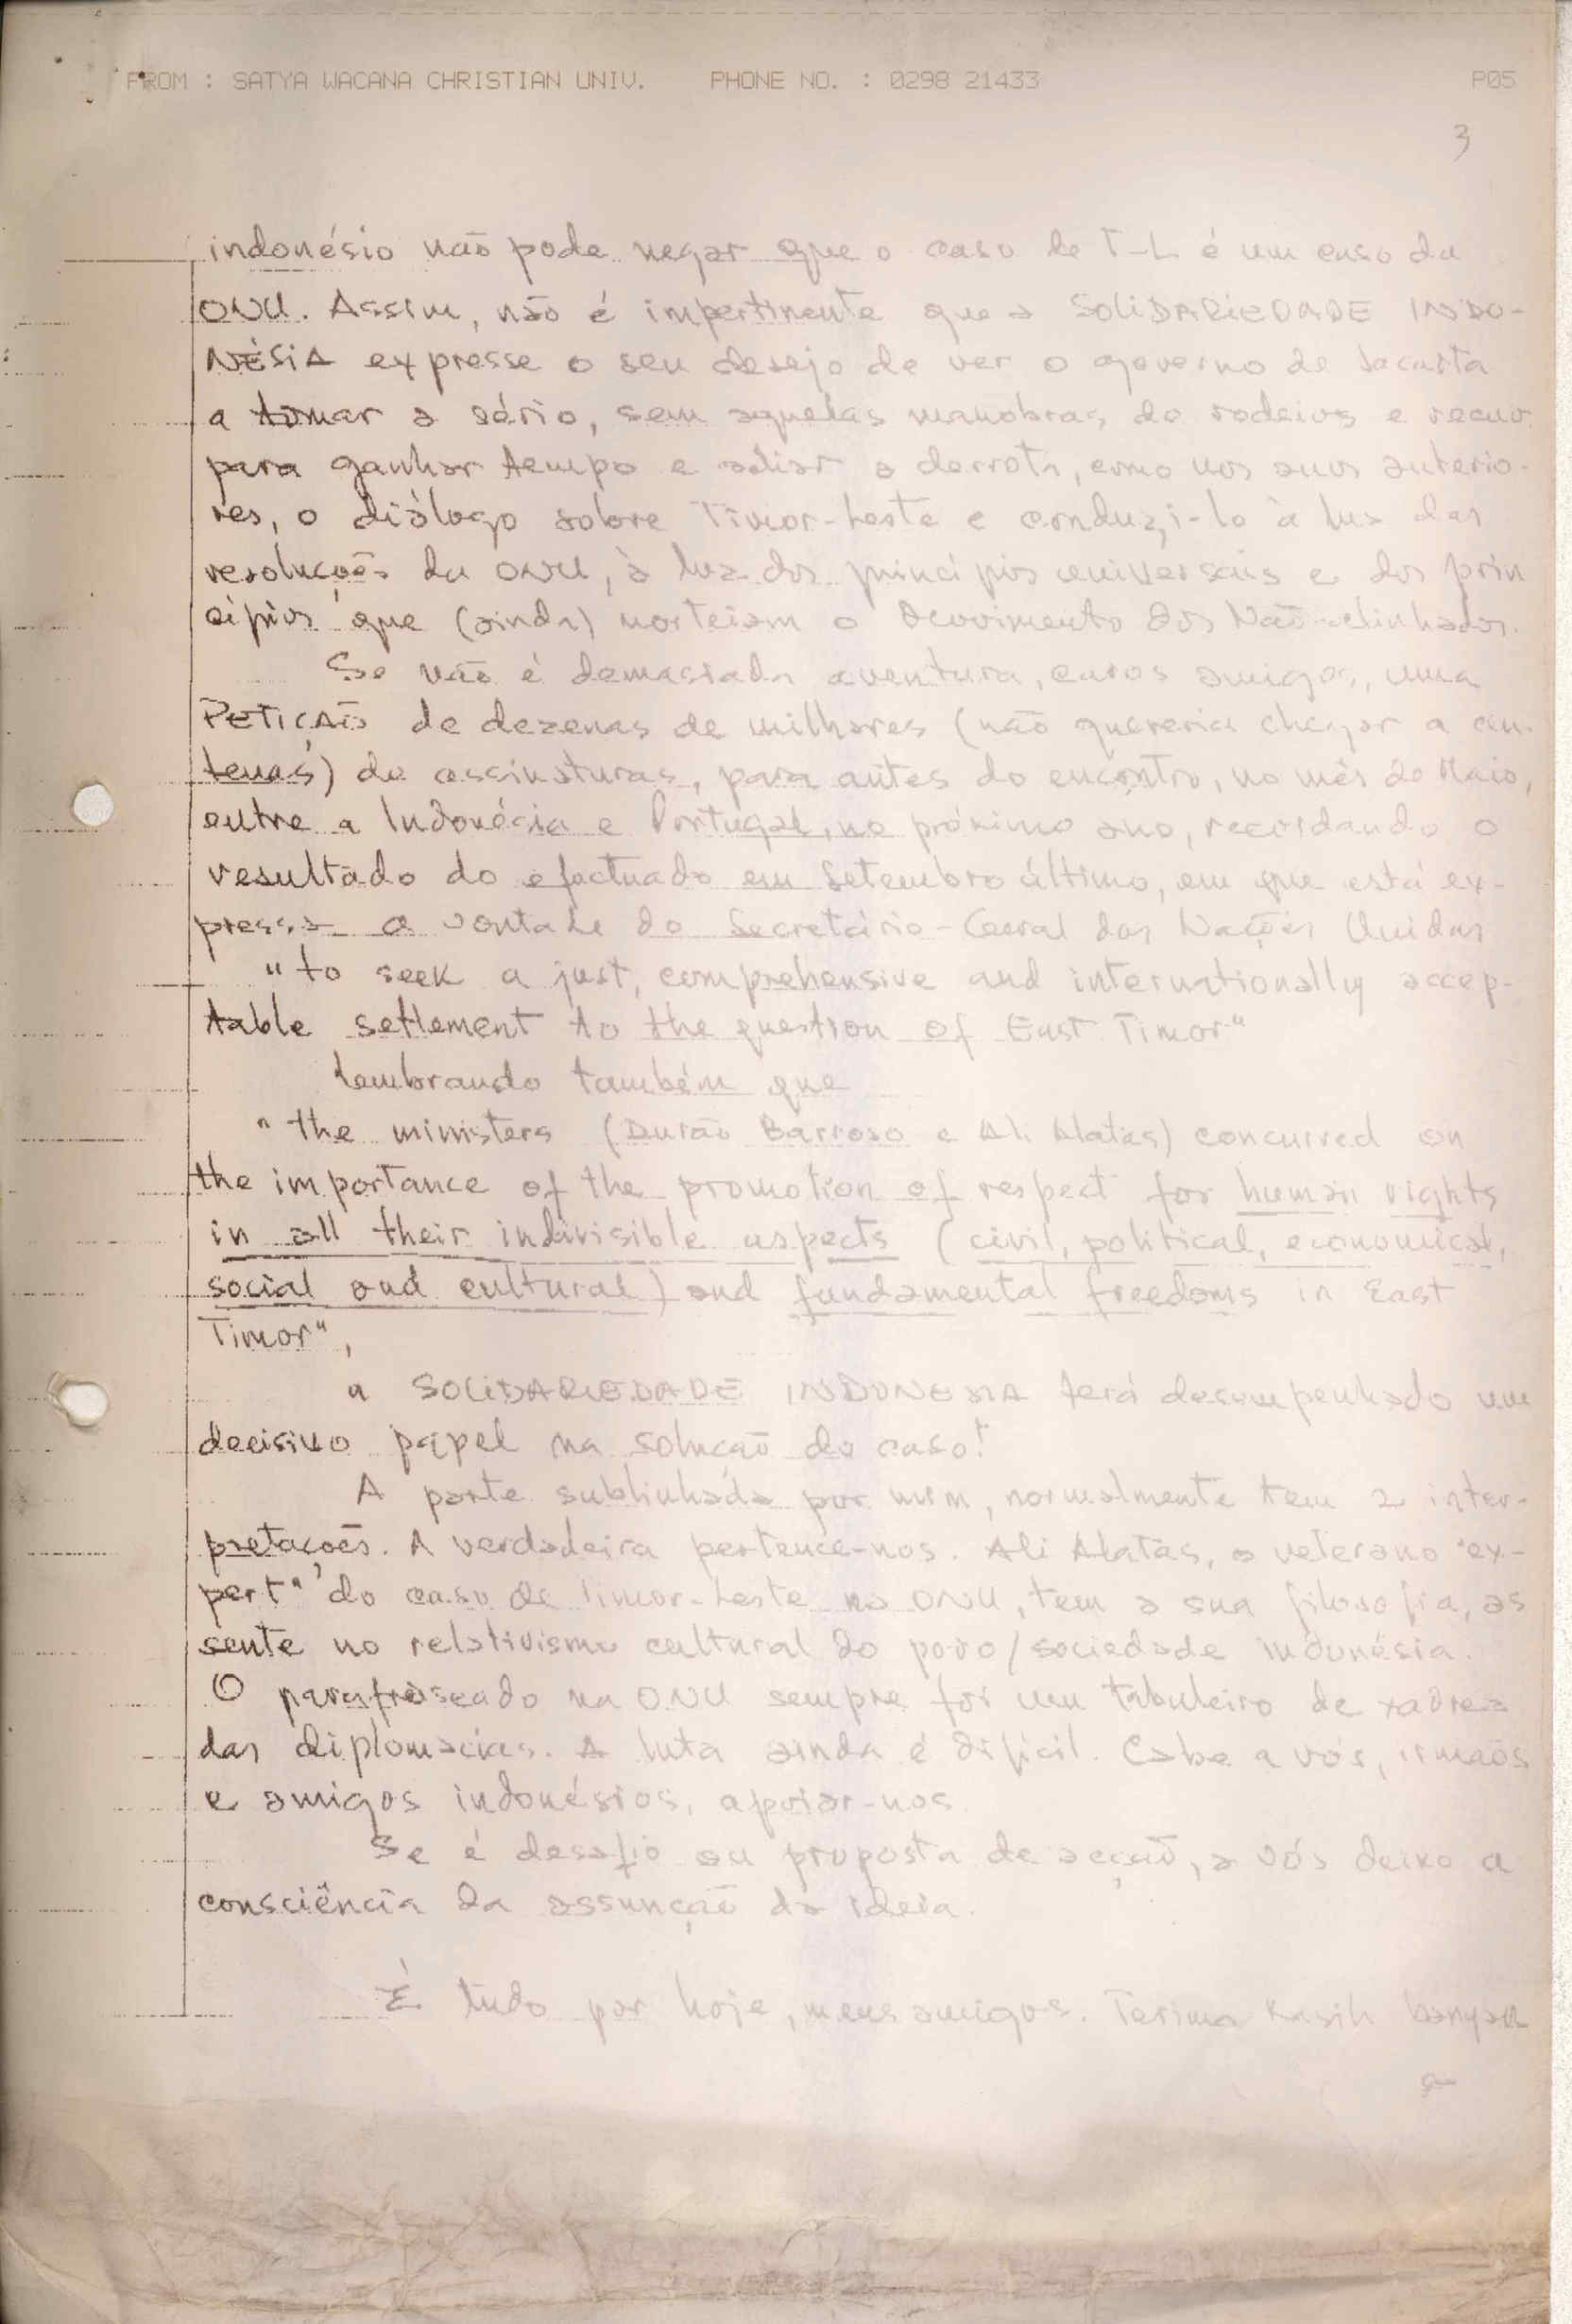 FROM : SATYA WACANA CHRISTIAN UNIV. PHONE NO. : 0298 21433 P05
3
indonésio não pode negar que o caso de T-L é um caso da
ONU. Assim, não é impertinente que a SOLIDARIEDADE INDO-
NÉSIA expresse o seu desejo de ver o governo de Jacarta
a tomar a sério, sem aquelas manobras de rodeios e recuo
para ganhar tempo e adiar a derrota, como nos anos anterio-
res, o diálogo sobre Timor-Leste e conduzi-lo à luz das
resoluções da ONU, à luz dos princípios universais e dos prin
cípios que (ainda) norteiam o Movimento dos Não-alinhados.
Se não é demasiada aventura, caros amigos, uma
PETIÇÃO de dezenas de milhares (não quereria chegar a cen-
tenas) de assinaturas, para antes do encontro, no mês de Maio,
entre a Indonésia e Portugal, no próximo ano, recordando o
resultado do efectuado em Setembro último, em que está ex-
pressa a vontade do Secretário-Geral das Nações Unidas
"to seek a just, comprehensive and internationally accep-
table setlement to the question of East Timor"
lembrando também que
"the ministers (Durão Barroso e Ali Alatas) concurred on
the importance of the promotion of respect for human rights
in all their indivisible aspects (civil, political, economical,
social and cultural) and fundamental freedoms in East
Timor",
a SOLIDARIEDADE INDONESIA terá desempenhado um
decisivo papel na solução do caso!
A parte sublinhada por mim, normalmente tem 2 inter-
pretações. A verdadeira pertence-nos. Ali Alatas, o veterano "ex-
pert" do caso de Timor-Leste na ONU, tem a sua filosofia, as
sente no relativismo cultural do povo/sociedade indonésia.
O parafraseado na ONU sempre foi um tabuleiro de xadrez
das diplomacias. A luta ainda é difícil. Cabe a vós, irmãos
e amigos indonésios, apoiar-nos.
Se é desafio ou proposta de acção, a vós deixo a
consciência da assunção da ideia.
É tudo por hoje, meus amigos. Terima kasih banyak